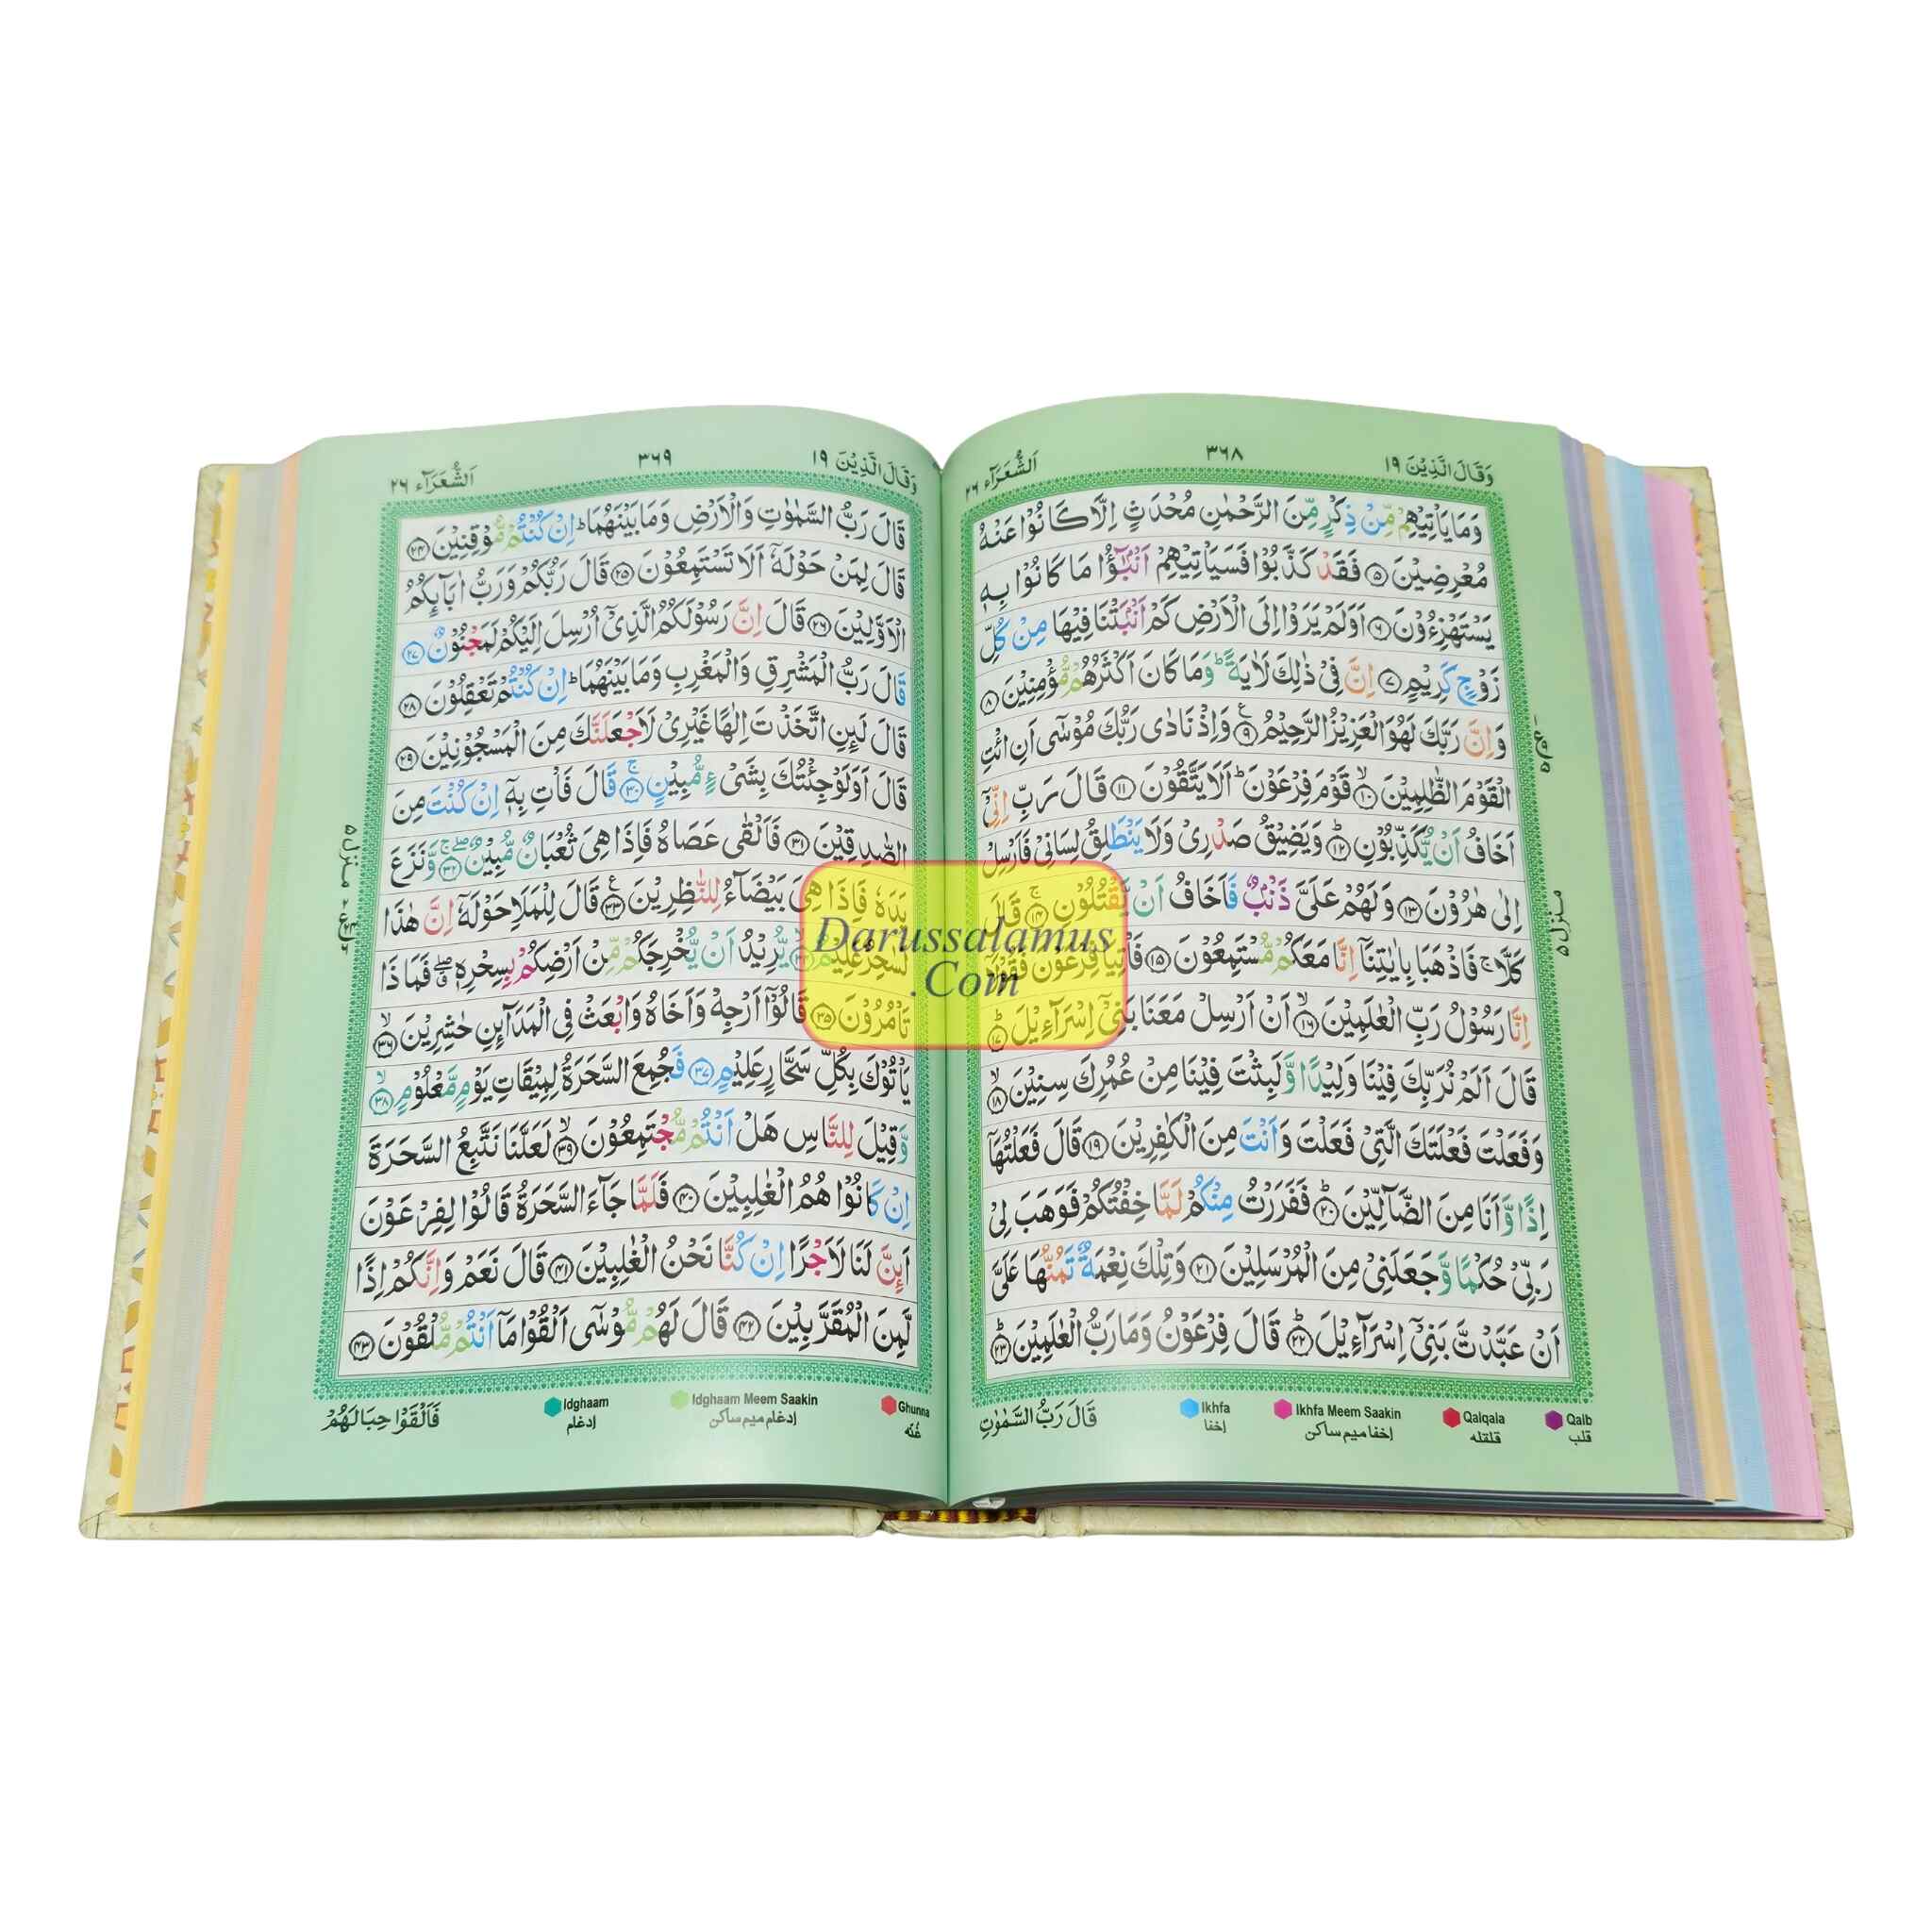 وَقَالَ الَّذِيْنَ ١٩
٣٦٨
اَلشُّعَرَآء ٢٦
وَمَا يَاْتِيْهِمْ مِّنْ ذِكْرٍ مِّنَ الرَّحْمٰنِ مُحْدَثٍ اِلَّا كَانُوْا عَنْهُ
مُعْرِضِيْنَ ۝٥ فَقَدْ كَذَّبُوْا فَسَيَاْتِيْهِمْ اَنْۢبٰٓؤُا مَا كَانُوْا بِهٖ
يَسْتَهْزِءُوْنَ ۝٦ اَوَلَمْ يَرَوْا اِلَى الْاَرْضِ كَمْ اَنْۢبَتْنَا فِيْهَا مِنْ كُلِّ
زَوْجٍ كَرِيْمٍ ۝٧ اِنَّ فِيْ ذٰلِكَ لَاٰيَةً ؕ وَمَا كَانَ اَكْثَرُهُمْ مُّؤْمِنِيْنَ ۝٨
وَاِنَّ رَبَّكَ لَهُوَ الْعَزِيْزُ الرَّحِيْمُ ۝٩ وَاِذْ نَادٰى رَبُّكَ مُوْسٰٓى اَنِ ائْتِ
الْقَوْمَ الظّٰلِمِيْنَ ۝١٠ قَوْمَ فِرْعَوْنَ ؕ اَلَا يَتَّقُوْنَ ۝١١ قَالَ رَبِّ اِنِّيْٓ
اَخَافُ اَنْ يُّكَذِّبُوْنِ ۝١٢ وَيَضِيْقُ صَدْرِيْ وَلَا يَنْطَلِقُ لِسَانِيْ فَاَرْسِلْ
اِلٰى هٰرُوْنَ ۝١٣ وَلَهُمْ عَلَيَّ ذَنْۢبٌ فَاَخَافُ اَنْ يَّقْتُلُوْنِ ۝١٤ قَالَ
كَلَّا ۚ فَاذْهَبَا بِاٰيٰتِنَآ اِنَّا مَعَكُمْ مُّسْتَمِعُوْنَ ۝١٥ فَاْتِيَا فِرْعَوْنَ فَقُوْلَآ
اِنَّا رَسُوْلُ رَبِّ الْعٰلَمِيْنَ ۝١٦ اَنْ اَرْسِلْ مَعَنَا بَنِيْٓ اِسْرَآءِيْلَ ۝١٧
قَالَ اَلَمْ نُرَبِّكَ فِيْنَا وَلِيْدًا وَّلَبِثْتَ فِيْنَا مِنْ عُمُرِكَ سِنِيْنَ ۝١٨
وَفَعَلْتَ فَعْلَتَكَ الَّتِيْ فَعَلْتَ وَاَنْتَ مِنَ الْكٰفِرِيْنَ ۝١٩ قَالَ فَعَلْتُهَآ
اِذًا وَّاَنَا مِنَ الضَّآلِّيْنَ ۝٢٠ فَفَرَرْتُ مِنْكُمْ لَمَّا خِفْتُكُمْ فَوَهَبَ لِيْ
رَبِّيْ حُكْمًا وَّجَعَلَنِيْ مِنَ الْمُرْسَلِيْنَ ۝٢١ وَتِلْكَ نِعْمَةٌ تَمُنُّهَا عَلَيَّ
اَنْ عَبَّدْتَّ بَنِيْٓ اِسْرَآءِيْلَ ۝٢٢ قَالَ فِرْعَوْنُ وَمَا رَبُّ الْعٰلَمِيْنَ ۝٢٣
منزل ٥
Ikhfa
إخفا
Ikhfa Meem Saakin
إخفا ميم ساكن
Qalqala
قلقله
Qalb
قلب
قَالَ رَبُّ السَّمٰوٰتِ
وَقَالَ الَّذِيْنَ ١٩
٣٦٩
اَلشُّعَرَآء ٢٦
قَالَ رَبُّ السَّمٰوٰتِ وَالْاَرْضِ وَمَا بَيْنَهُمَا ؕ اِنْ كُنْتُمْ مُّوْقِنِيْنَ ۝٢٤
قَالَ لِمَنْ حَوْلَهٗٓ اَلَا تَسْتَمِعُوْنَ ۝٢٥ قَالَ رَبُّكُمْ وَرَبُّ اٰبَآىِٕكُمُ
الْاَوَّلِيْنَ ۝٢٦ قَالَ اِنَّ رَسُوْلَكُمُ الَّذِيْٓ اُرْسِلَ اِلَيْكُمْ لَمَجْنُوْنٌ ۝٢٧
قَالَ رَبُّ الْمَشْرِقِ وَالْمَغْرِبِ وَمَا بَيْنَهُمَا ؕ اِنْ كُنْتُمْ تَعْقِلُوْنَ ۝٢٨
قَالَ لَىِٕنِ اتَّخَذْتَ اِلٰهًا غَيْرِيْ لَاَجْعَلَنَّكَ مِنَ الْمَسْجُوْنِيْنَ ۝٢٩
قَالَ اَوَلَوْ جِئْتُكَ بِشَيْءٍ مُّبِيْنٍ ۝٣٠ قَالَ فَاْتِ بِهٖٓ اِنْ كُنْتَ مِنَ
الصّٰدِقِيْنَ ۝٣١ فَاَلْقٰى عَصَاهُ فَاِذَا هِيَ ثُعْبَانٌ مُّبِيْنٌ ۝٣٢ وَّنَزَعَ
يَدَهٗ فَاِذَا هِيَ بَيْضَآءُ لِلنّٰظِرِيْنَ ۝٣٣ قَالَ لِلْمَلَاِ حَوْلَهٗٓ اِنَّ هٰذَا
لَسٰحِرٌ عَلِيْمٌ ۝٣٤ يُّرِيْدُ اَنْ يُّخْرِجَكُمْ مِّنْ اَرْضِكُمْ بِسِحْرِهٖ ۖ فَمَا ذَا
تَاْمُرُوْنَ ۝٣٥ قَالُوْٓا اَرْجِهْ وَاَخَاهُ وَابْعَثْ فِي الْمَدَآىِٕنِ حٰشِرِيْنَ ۝٣٦
يَاْتُوْكَ بِكُلِّ سَحَّارٍ عَلِيْمٍ ۝٣٧ فَجُمِعَ السَّحَرَةُ لِمِيْقَاتِ يَوْمٍ مَّعْلُوْمٍ ۝٣٨
وَّقِيْلَ لِلنَّاسِ هَلْ اَنْتُمْ مُّجْتَمِعُوْنَ ۝٣٩ لَعَلَّنَا نَتَّبِعُ السَّحَرَةَ
اِنْ كَانُوْا هُمُ الْغٰلِبِيْنَ ۝٤٠ فَلَمَّا جَآءَ السَّحَرَةُ قَالُوْا لِفِرْعَوْنَ
اَىِٕنَّ لَنَا لَاَجْرًا اِنْ كُنَّا نَحْنُ الْغٰلِبِيْنَ ۝٤١ قَالَ نَعَمْ وَاِنَّكُمْ اِذًا
لَّمِنَ الْمُقَرَّبِيْنَ ۝٤٢ قَالَ لَهُمْ مُّوْسٰٓى اَلْقُوْا مَآ اَنْتُمْ مُّلْقُوْنَ ۝٤٣
منزل ٥
Idghaam
إدغام
Idghaam Meem Saakin
إدغام ميم ساكن
Ghunna
غنّه
فَاَلْقَوْا حِبَالَهُمْ
Darussalamus
.Com